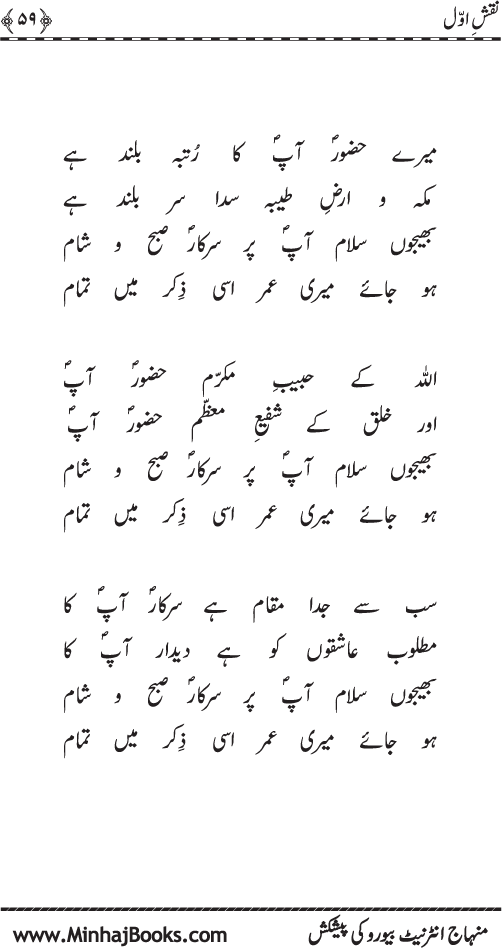 نقشِ اوّل ﴿۵۹﴾
میرے حضورؐ آپؐ کا رُتبہ بلند ہے
مکہ و ارضِ طیبہ سدا سر بلند ہے
بھیجوں سلام آپؐ پر سرکارؐ صبح و شام
ہو جائے میری عمر اسی ذِکر میں تمام
اللہ کے حبیبِ مکرّم حضورؐ آپؐ
اور خلق کے شفیعِ معظّم حضورؐ آپؐ
بھیجوں سلام آپؐ پر سرکارؐ صبح و شام
ہو جائے میری عمر اسی ذِکر میں تمام
سب سے جدا مقام ہے سرکارؐ آپؐ کا
مطلوب عاشقوں کو ہے دیدار آپؐ کا
بھیجوں سلام آپؐ پر سرکارؐ صبح و شام
ہو جائے میری عمر اسی ذِکر میں تمام
منہاج انٹرنیٹ بیورو کی پیشکش www.MinhajBooks.com